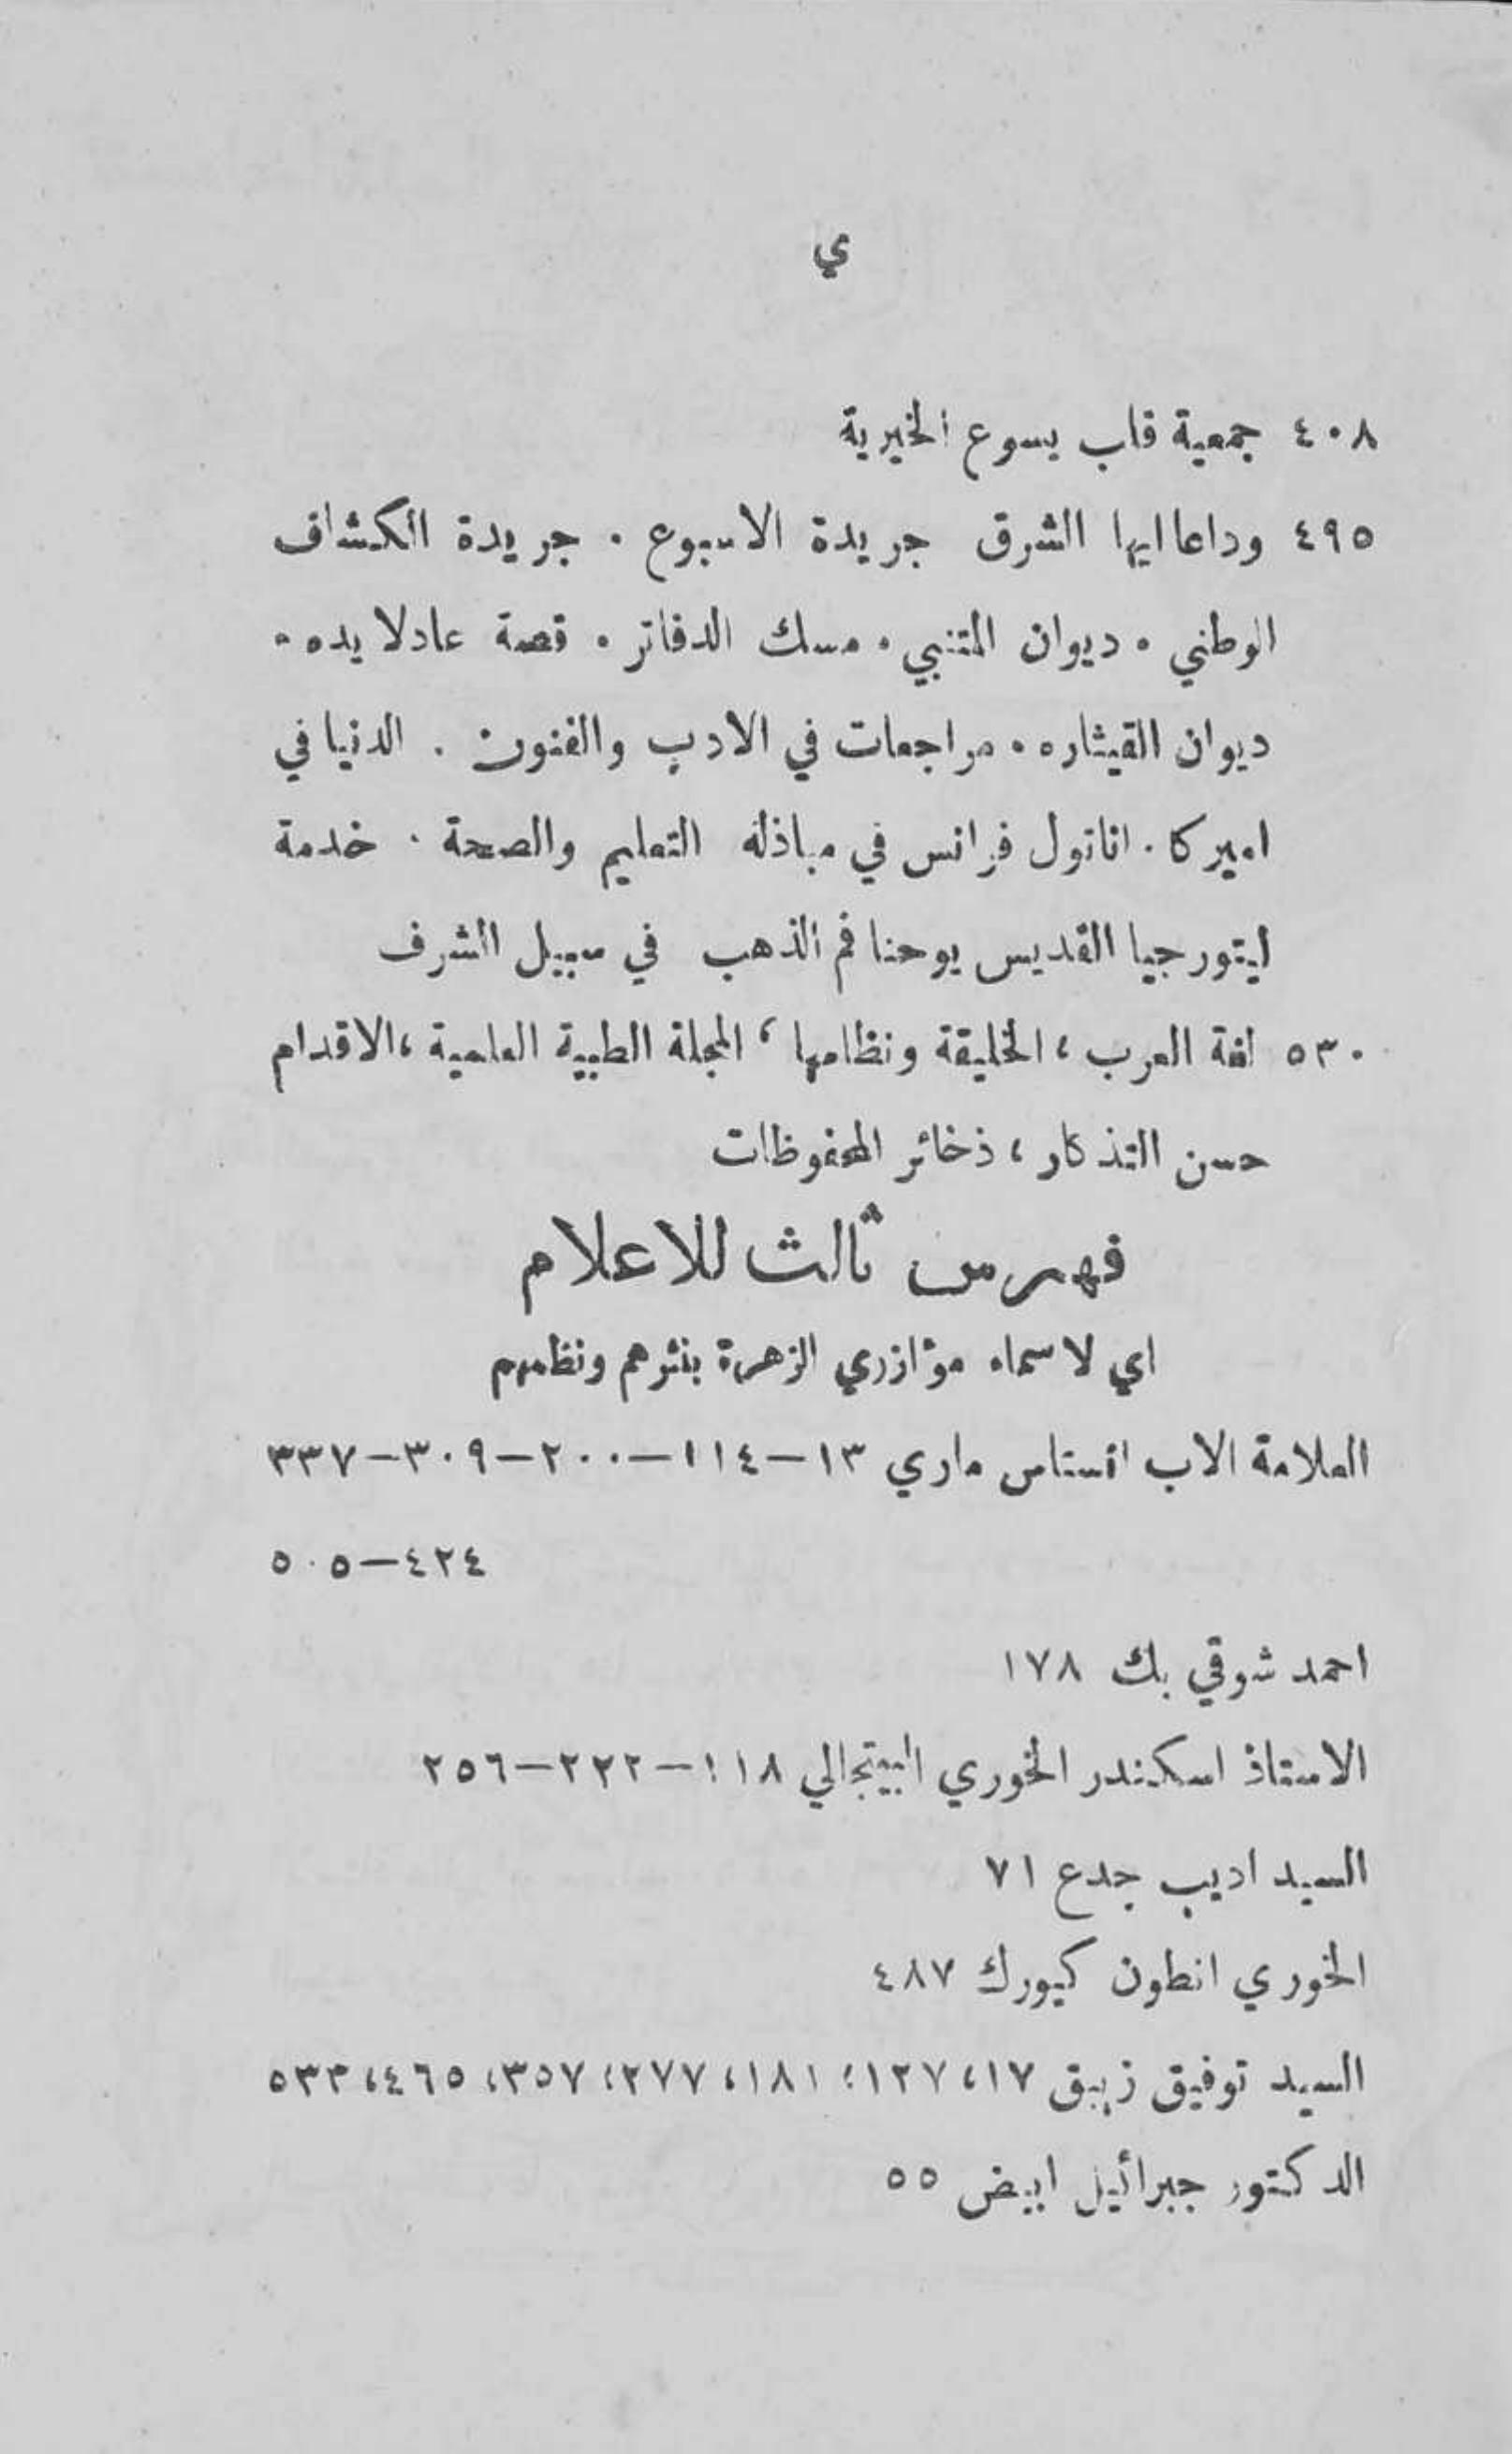 ي
٤٠٨ جمعية قلب يسوع الخيرية
٤٩٥ وداعا ايها الشرق جريدة الاسبوع . جريدة الكشاف
الوطني . ديوان المتنبي . مسك الدفاتر . قصة عادلا يده .
ديوان القيثاره . مراجعات في الادب والفنون . الدنيا في
اميركا . اناتول فرانس في مباذله التعليم والصحة . خدمة
ليتورجيا القديس يوحنا فم الذهب في سبيل الشرف
٥٣٠ لغة العرب ، الخليقة ونظامها ، المجلة الطبية العلمية ، الاقدام
حسن التذكار ، ذخائر المحفوظات
فهرس ثالث للاعلام
اي لاسماء مؤازري الزهرة بنثرهم ونظمهم
العلامة الاب انستاس ماري ١٣–١١٤–٢٠٠–٣٠٩–٣٣٧
٤٢٤–٥٠٥
احمد شوقي بك ١٧٨
الاستاذ اسكندر الخوري البيتجالي ١١٨–٢٢٢–٢٥٦
السيد اديب جدع ٧١
الخوري انطون كيورك ٤٨٧
السيد توفيق زيبق ١٧، ١٢٧، ١٨١، ٢٧٧، ٣٥٧، ٤٦٥، ٥٣٣
الدكتور جبرائيل ابيض ٥٥